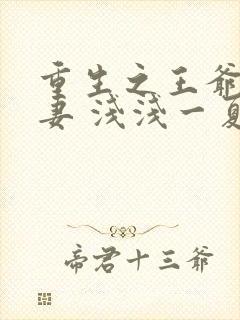 重生之王爷
妻 浅浅一夏
帝君十三爷